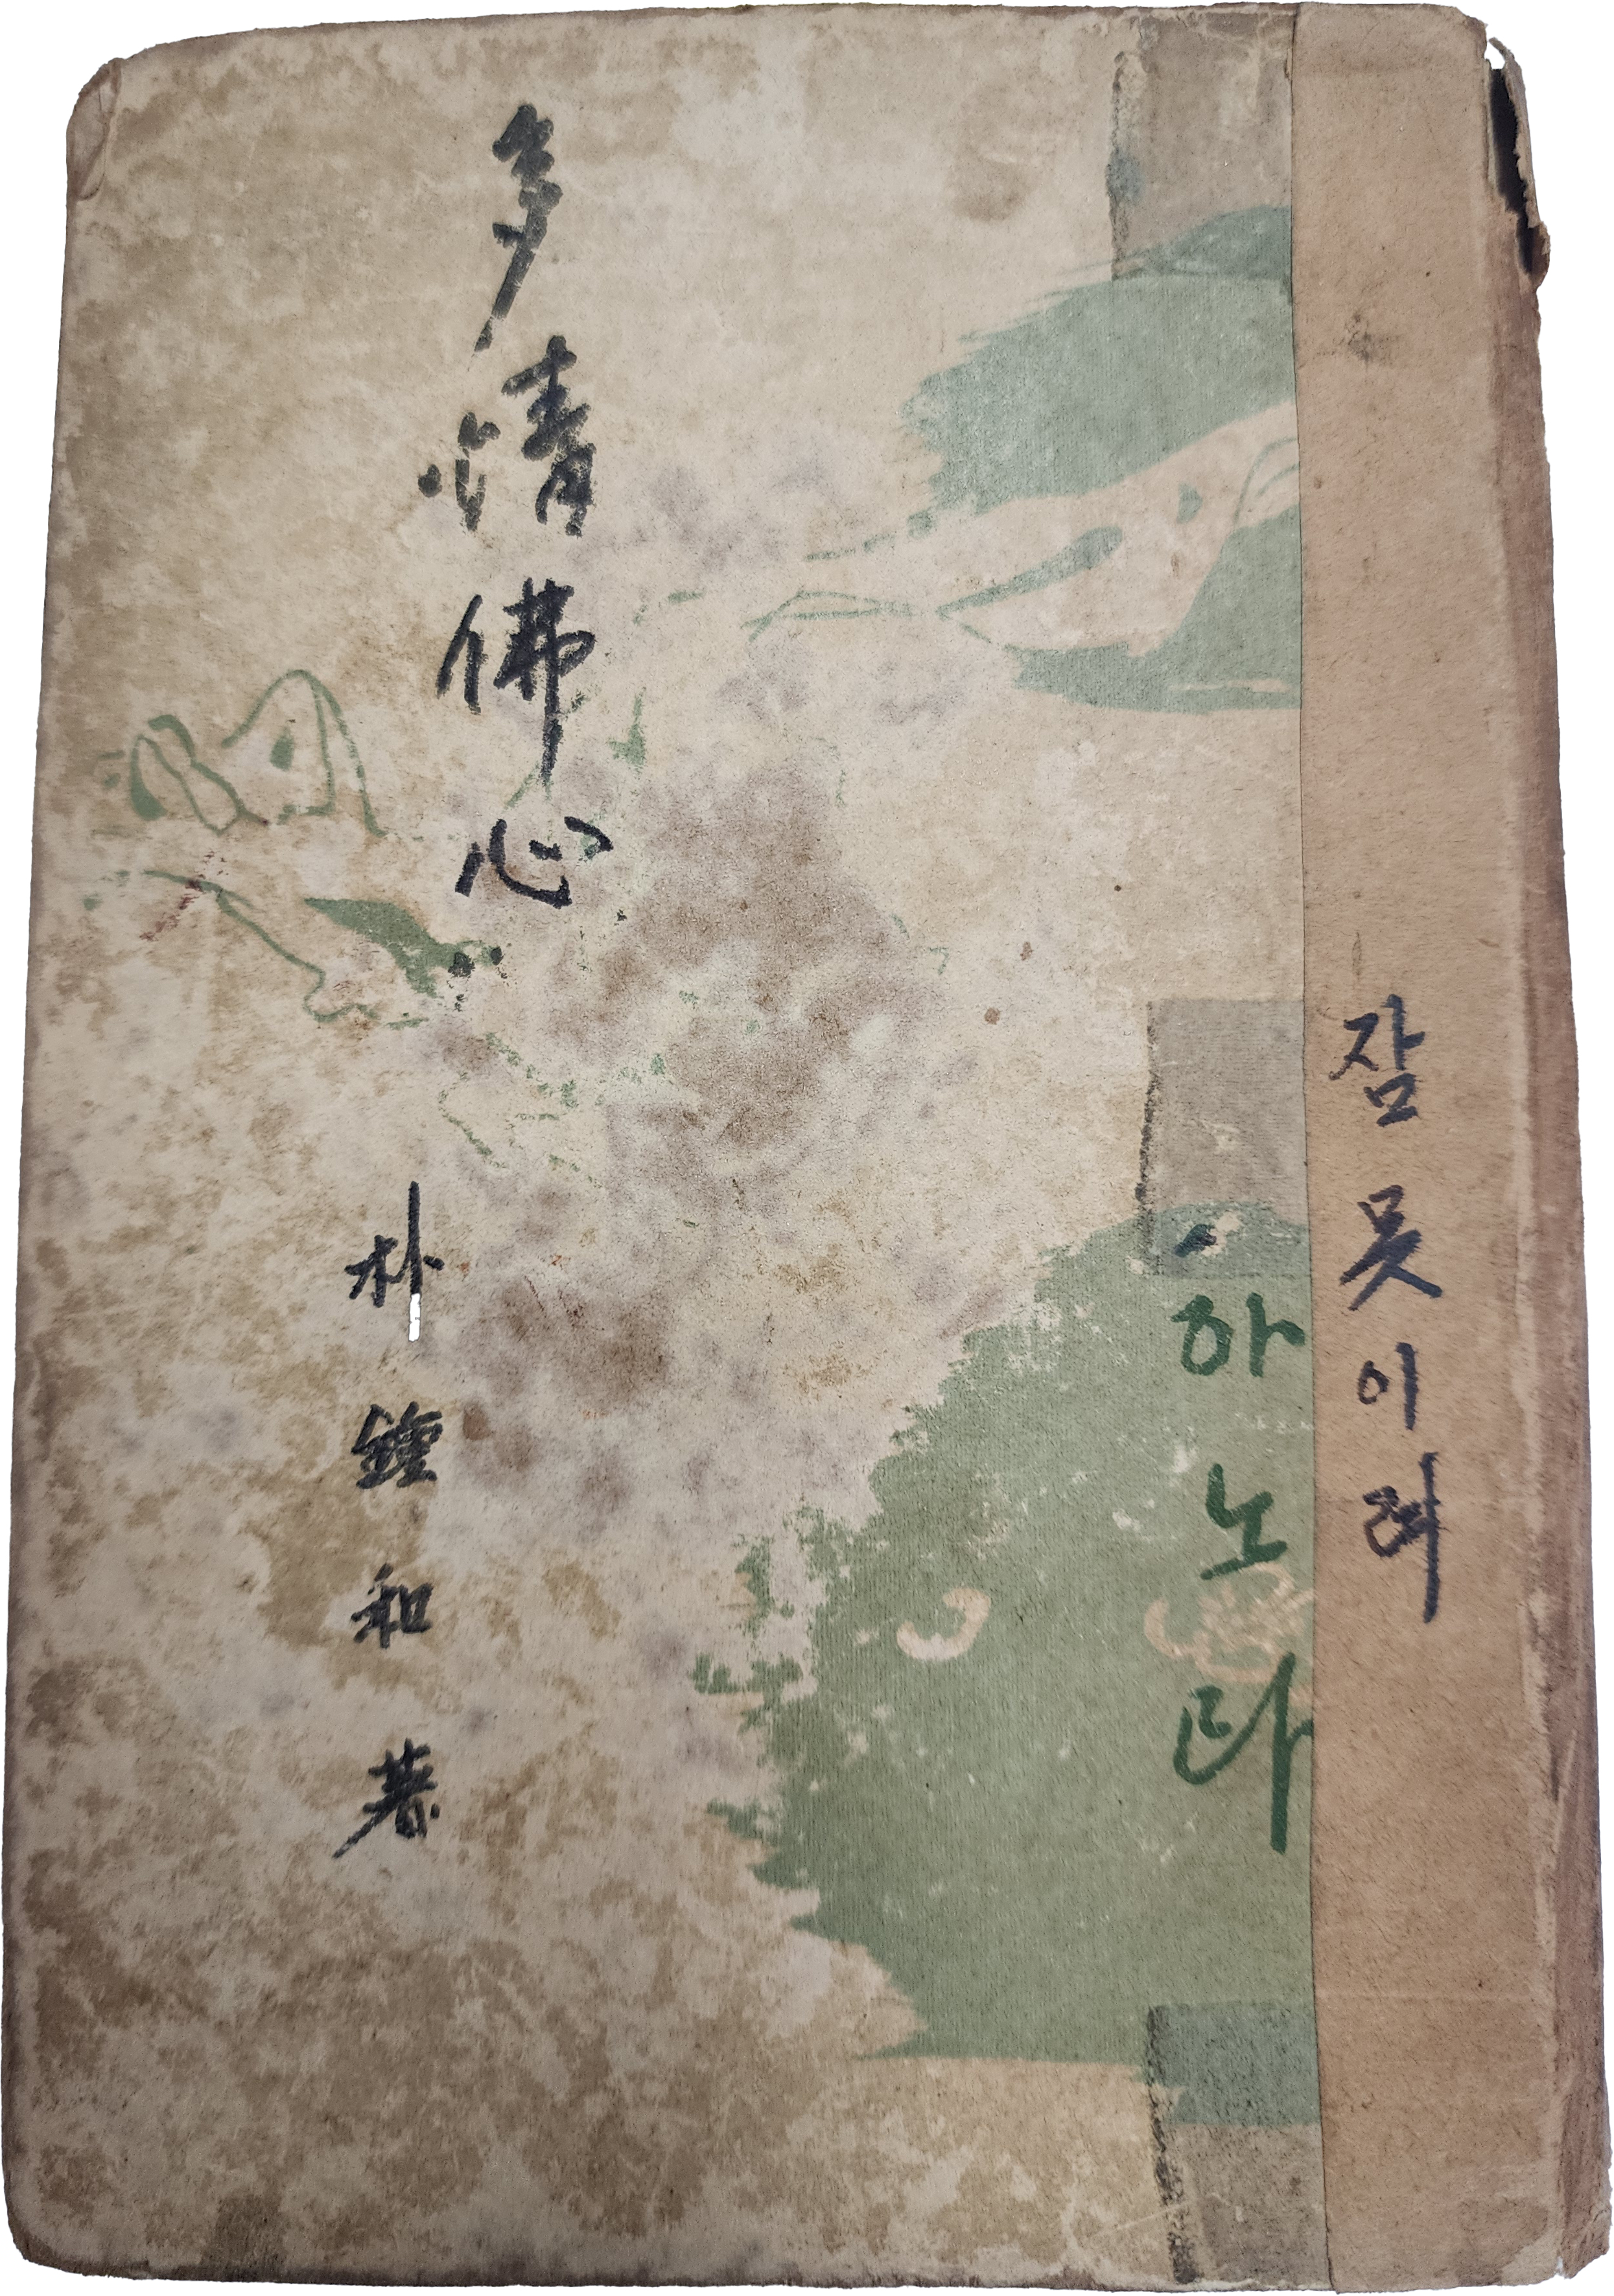 잠 못 이려
하 노 라
多情佛心
朴鍾和著